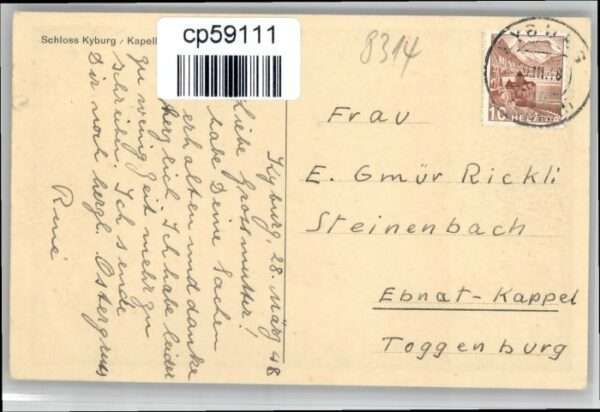 Schloss Kyburg / Kapell
cp59111
8314
KYBURG
10 HELVETIA
Kyburg, 28. März 48
Liebe Grossmutter!
habe Deine Sachen
erhalten und danke
herzlich. Ich habe leider
zu wenig Zeit mehr zu
schreiben. Ich sende
Dir noch herzl. Ostergruss
René
Frau
E. Gmür Rickli
Steinenbach
Ebnat-Kappel
Toggenburg